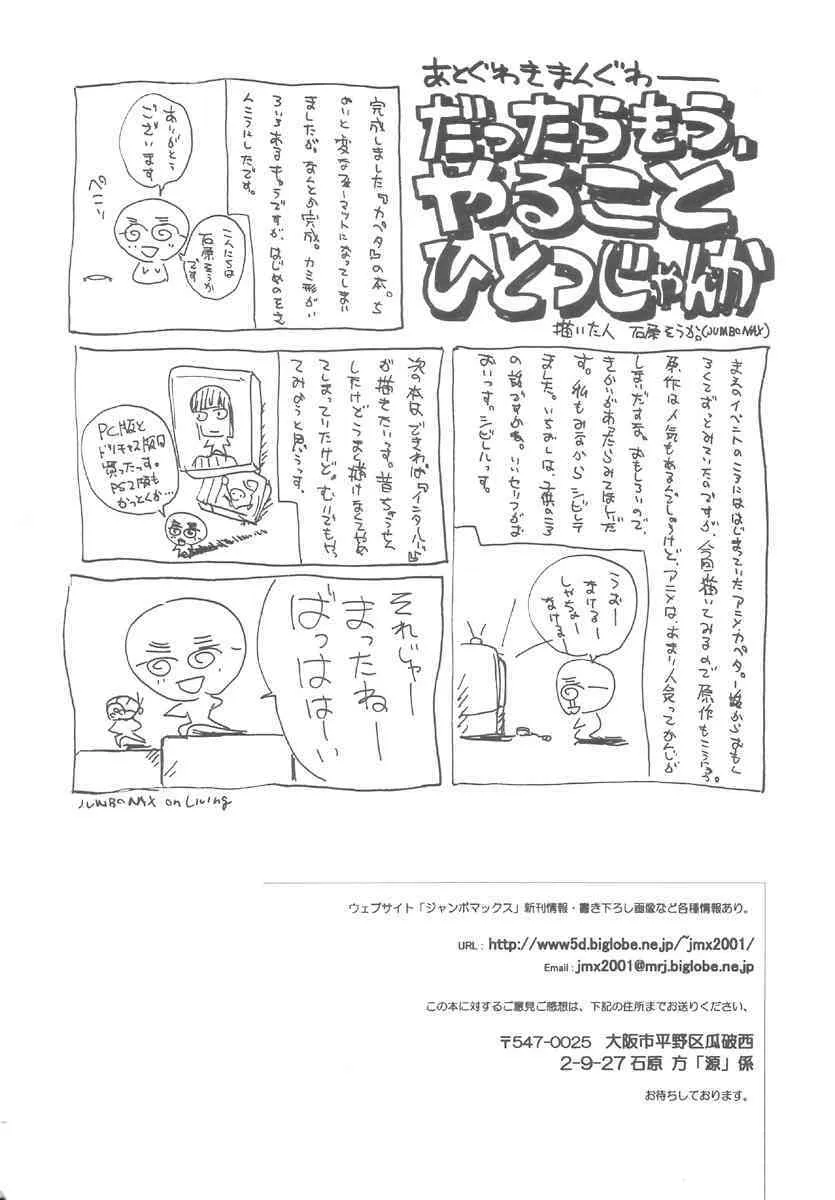 あとぐわきまんぐわー
だったらもう、
やること
ひとつじゃんか
描いた人 石原そうか。(JUMBOMAX)
完成しました『カペタ』の本。ち
ょいと変なフォーマットになってしまい
ましたが。なんとか完成。カミ形がい
ろいろあるキャラですが、はじめのをさ
んこうにしたです。
ありがとう
ございます
こんにちは
石原そうか
です
ぺこーり
まえのイベントのころにははじまっていたアニメ・カペタ。一話からおもし
ろくてずっとみていたのですが、今回描いてみるので原作もこうにう。
原作は人気もあるんでしょうけど、アニメは、あまり人気ってかんじが
しまいだすな。おもしろいので、
きかいがあったらみてほしいだ
す。私もみながらシビレテ
ました。いちおしは、子供のころ
の話ですかね。いいセリフがお
おいっす。シビレルっす。
うおー
なけるー
しゃちょー
なけるー
次の本は、できれば『インタールード』
が描きたいっす。昔ちょうせん
したけどうまく描けなくてやめ
てしまっていたけど。むりでもやっ
てみようと思うっす。
PC版と
ドリキャス版は
買ったっす。
PS2版も
かっとくか…
それじゃー
まったねー
ばっははーい
JUMBOMAX on Living
ウェブサイト「ジャンボマックス」新刊情報・書き下ろし画像など各種情報あり。
URL : http://www5d.biglobe.ne.jp/~jmx2001/
Email : jmx2001@mrj.biglobe.ne.jp
この本に対するご意見ご感想は、下記の住所までお送りください、
〒547-0025 大阪市平野区瓜破西
2-9-27 石原 方「源」係
お待ちしております。